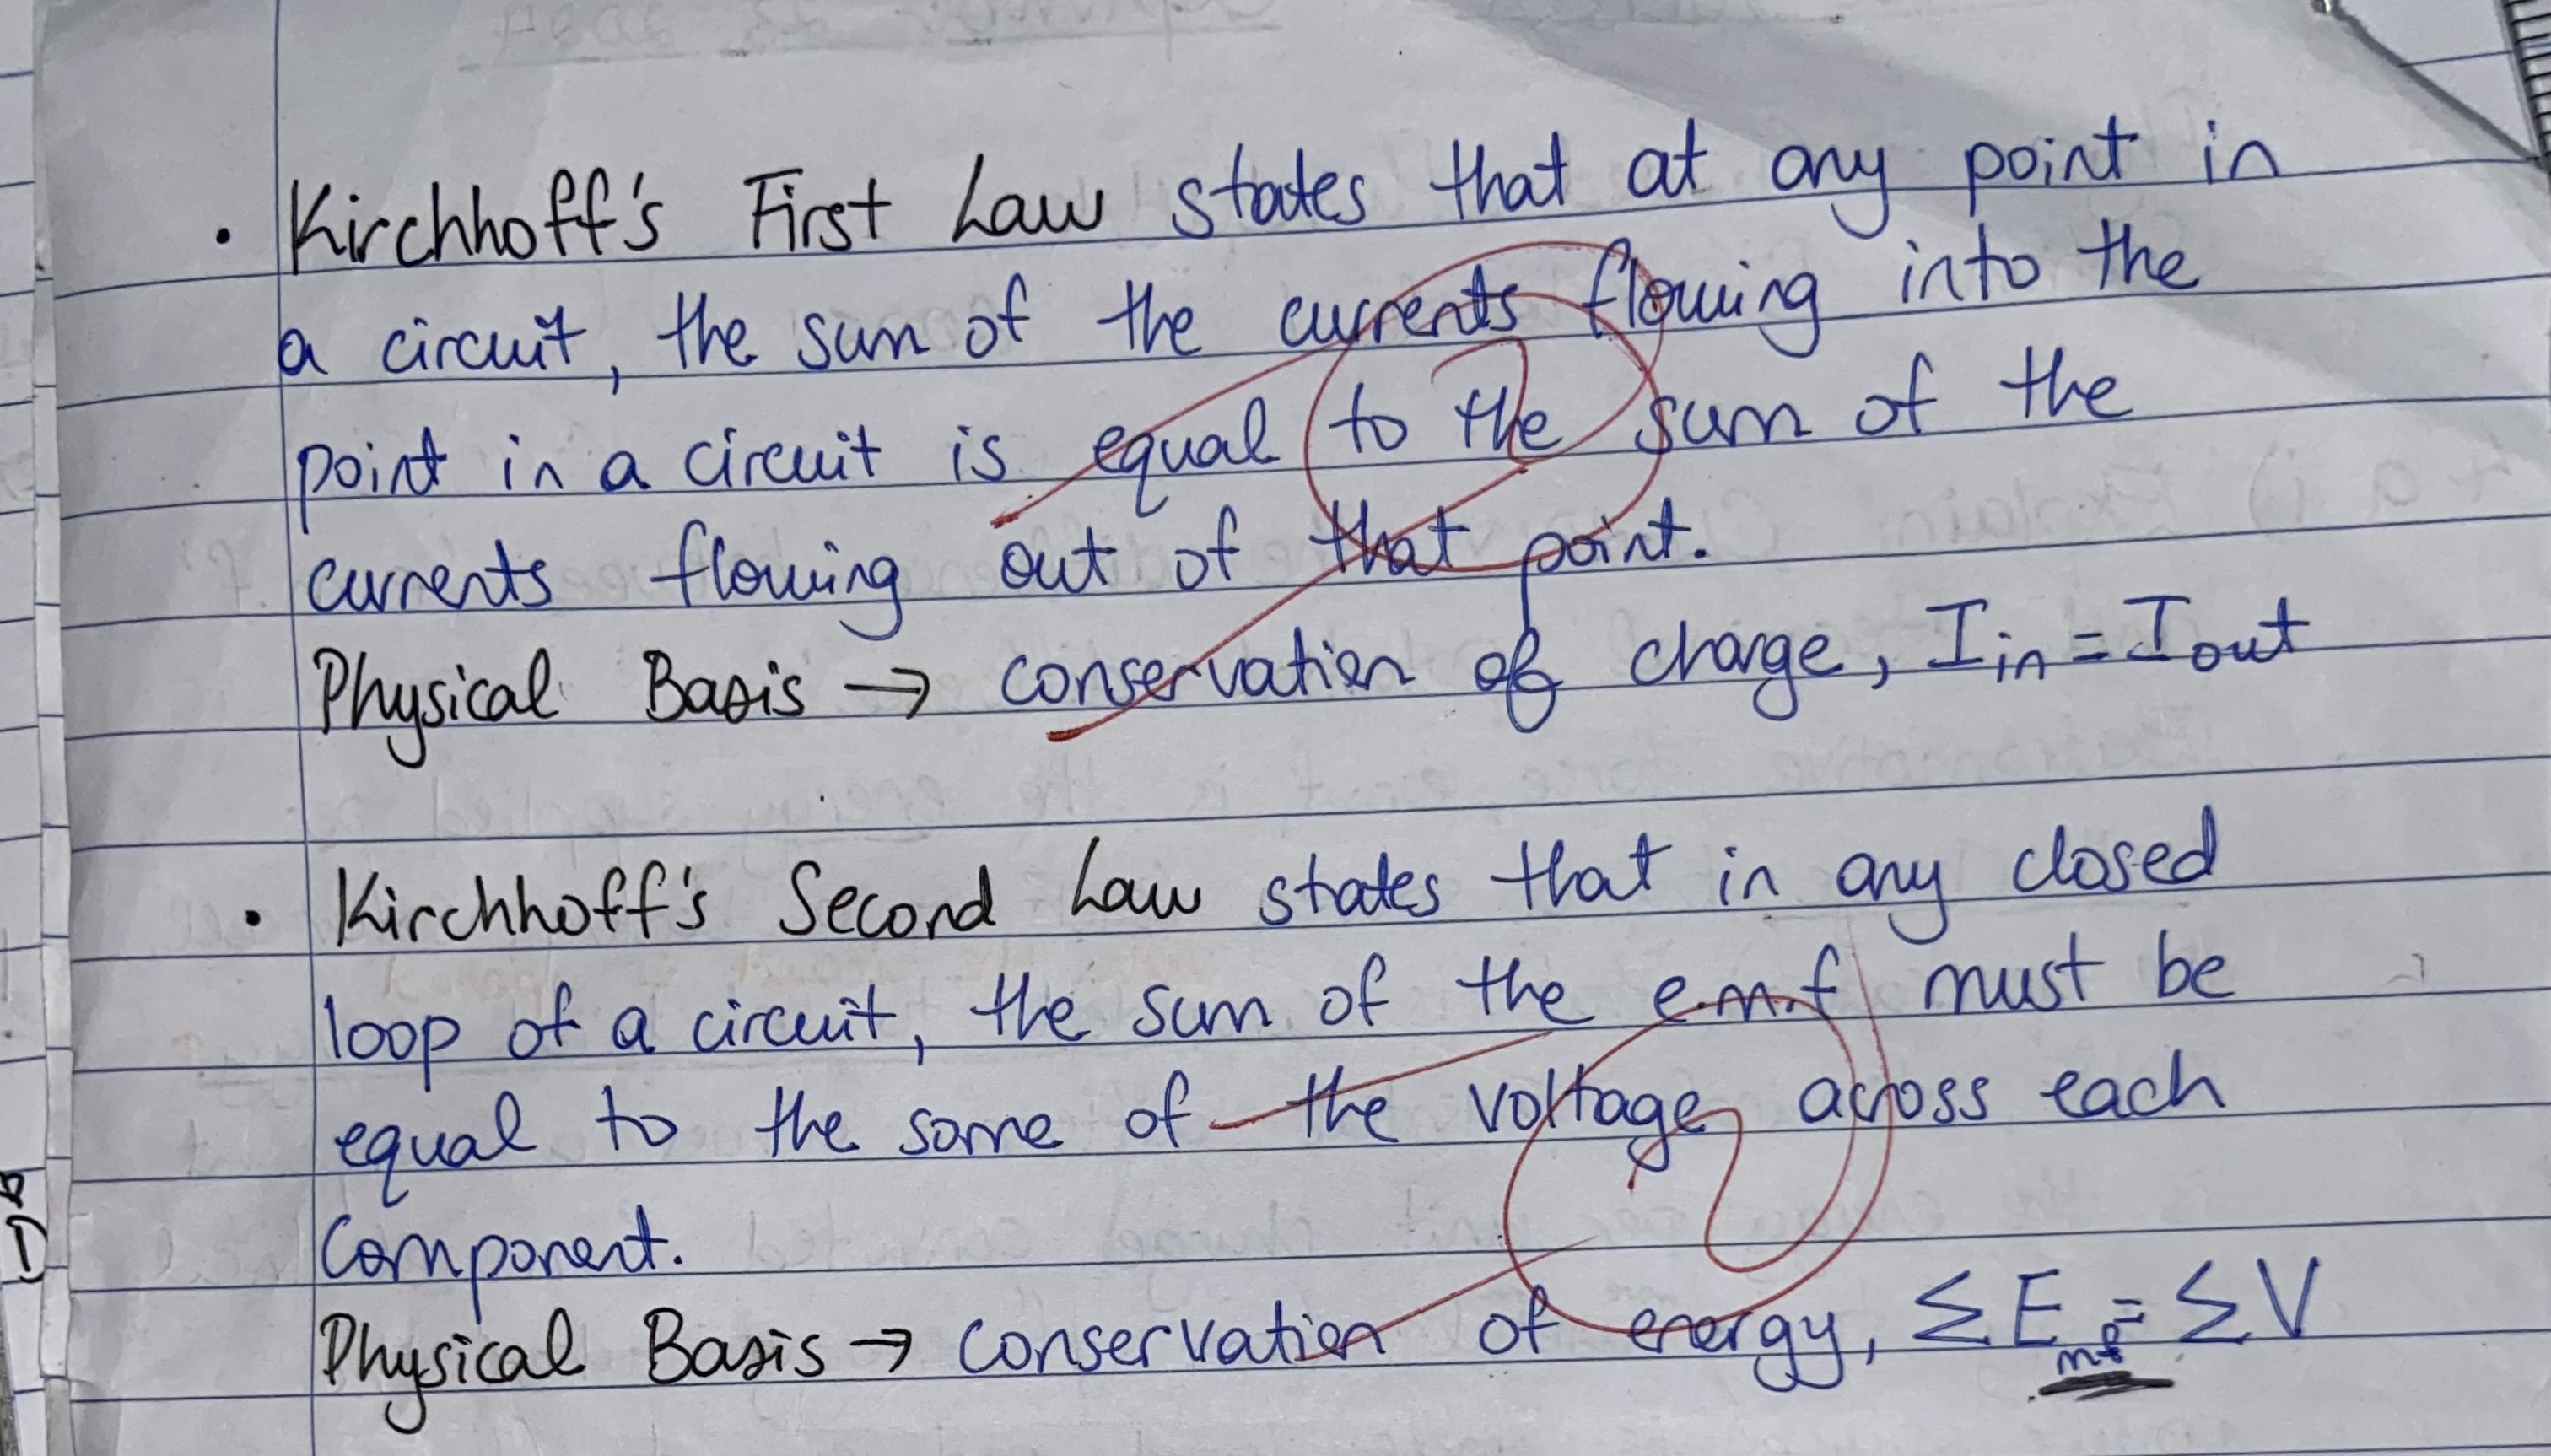 • Kirchhoff's First Law states that at any point in
a circuit, the sum of the currents flowing into the
point in a circuit is equal to the sum of the
currents flowing out of that point.
Physical Basis → conservation of charge, Iin = Iout
• Kirchhoff's Second Law states that in any closed
loop of a circuit, the sum of the e.m.f must be
equal to the same of the voltage across each
component.
Physical Basis → conservation of energy, ΣEmf = ΣV